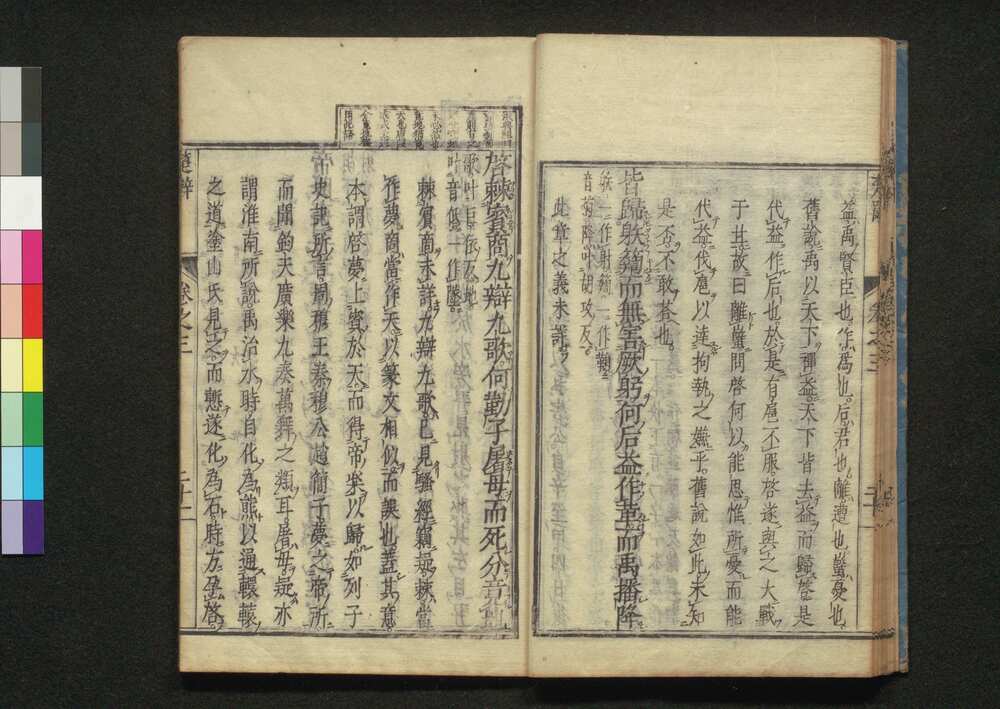 益禹賢臣也作為也后君也離遭也蠥憂也
舊說禹以天下禪益天下皆去益而歸啓是
代益作后也於是有扈不服啓遂與之大戰
于甘故曰離蠥問啓何以能思惟所憂而能
代益伐扈以達拘執之嫌乎舊說如此未知
是否不敢荅也
皆歸䠶鞫而無害厥躬何后益作革而禹播降
䠶一作射鞫一作鞠
音菊降叶胡攻反
此章之義未詳
啓棘賓商九辯九歌何勤子屠母而死分竟地
歌叶巨依反地
叶音低一作墬
棘賓商未詳九辯九歌已見騷經竊疑棘當
作夢商當作天以篆文相似而誤也蓋其意
本謂啓夢上賓於天而得帝樂以歸如列子
史記所言周穆王秦穆公趙簡子夢之帝所
而聞鈞天廣樂九奏萬舞之類耳屠母疑亦
謂淮南所說禹治水時自化為熊以通轘轅
之道塗山氏見之而慙遂化為石時方孕啓
楚辭
卷之三